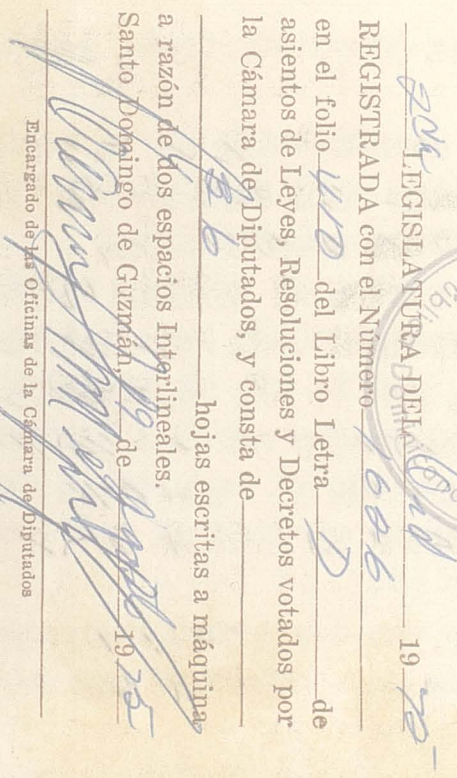 2da LEGISLATURA DEL Ord 1975
REGISTRADA con el Número 1626
en el folio 40 del Libro Letra D de
asientos de Leyes, Resoluciones y Decretos votados por
la Cámara de Diputados, y consta de
36 hojas escritas a máquina
a razón de dos espacios Interlineales.
Santo Domingo de Guzmán, 19 de 1975
Encargado de las Oficinas de la Cámara de Diputados